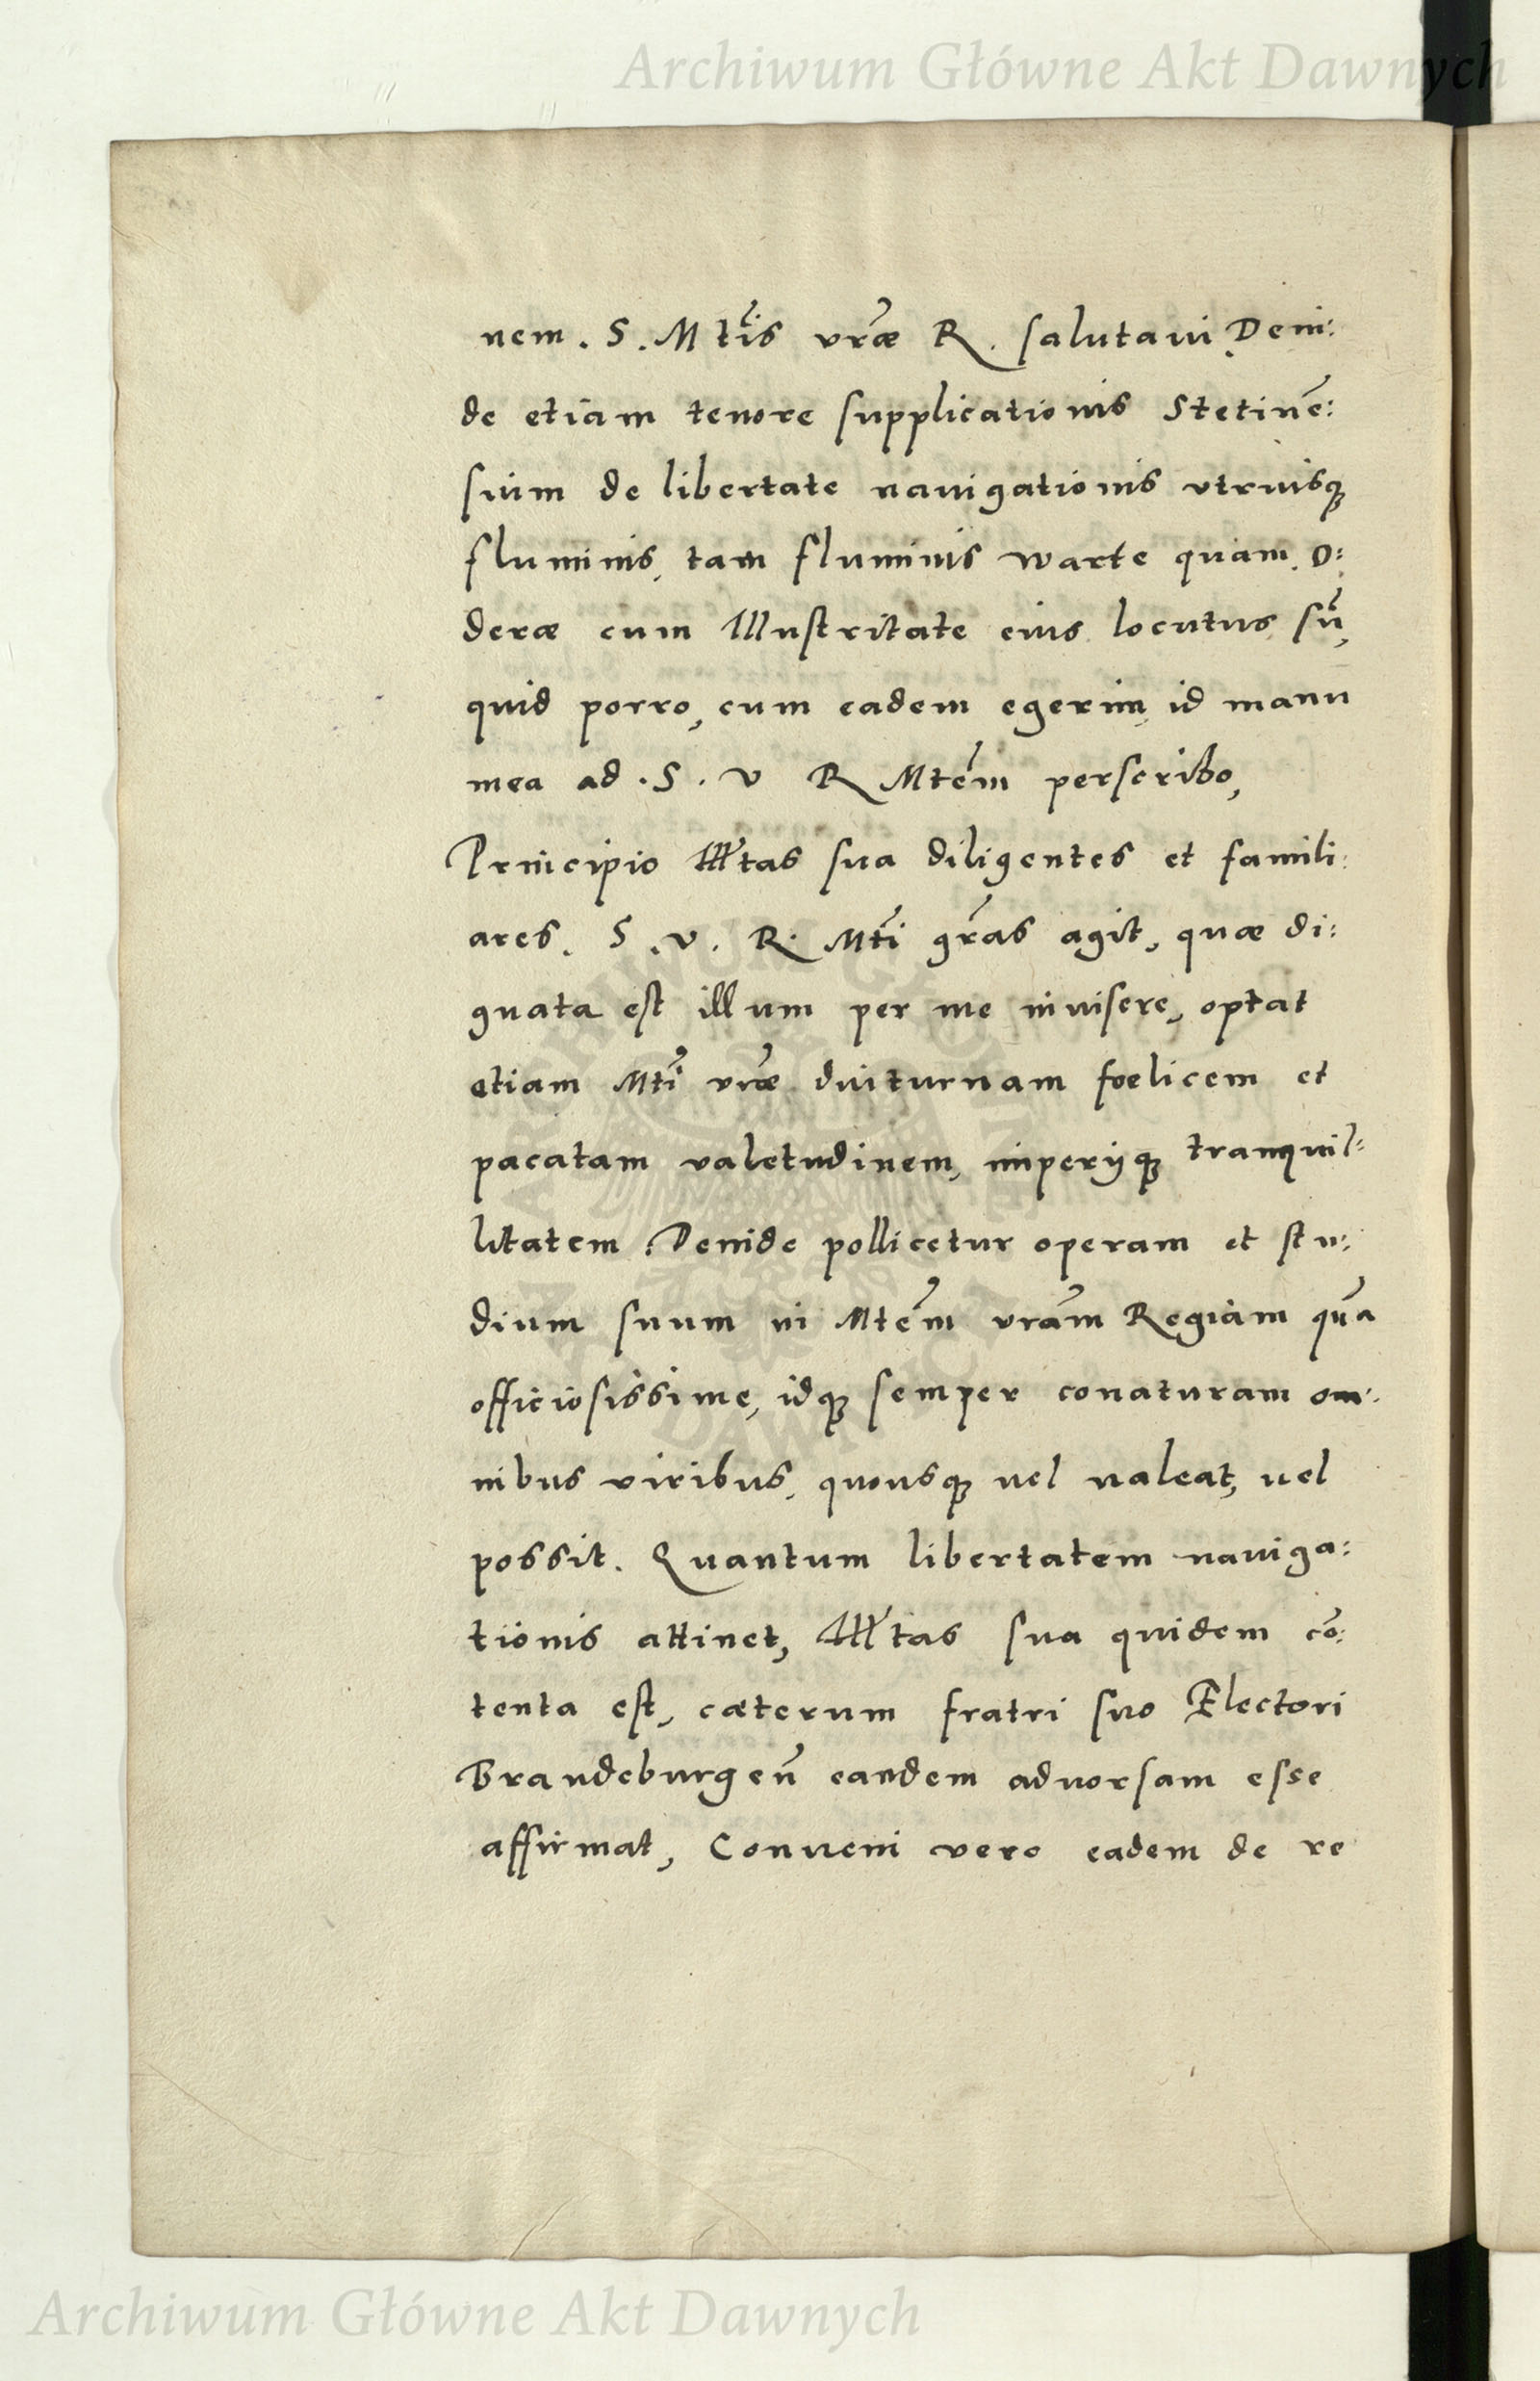 Archiwum Główne Akt Dawnych
nem. S. Mtis vræ R. salutaui. Dein:
de etiam tenore supplicationis Stetinē:
sium de libertate nauigationis vtriusq3
fluminis, tam fluminis warte quam, O:
deræ cum Illustritate eius locutus sū,
quid porro, cum eadem egerim, id manu
mea ad. S. V R Mtem perscribo,
Principio Illtas sua diligentes et famili:
ares. S. V. R. Mti gras agit, quæ di:
gnata est illum per me inuisere, optat
etiam Mti vræ diuturnam foelicem et
pacatam valetudinem, imperijq3 tranquil:
litatem. Deinde pollicetur operam et stu:
dium suum in Mtem vram Regiam quā
officiosissime, idq3 semper conaturam om:
nibus viribus, quousq3 uel ualeat, uel
possit. Quantum libertatem nauiga:
tionis attinet, Illtas sua quidem cō:
tenta est, cæterum fratri suo Electori
Brandeburgeñ eandem aduorsam esse
affirmat, Conueni vero eadem de re
Archiwum Główne Akt Dawnych